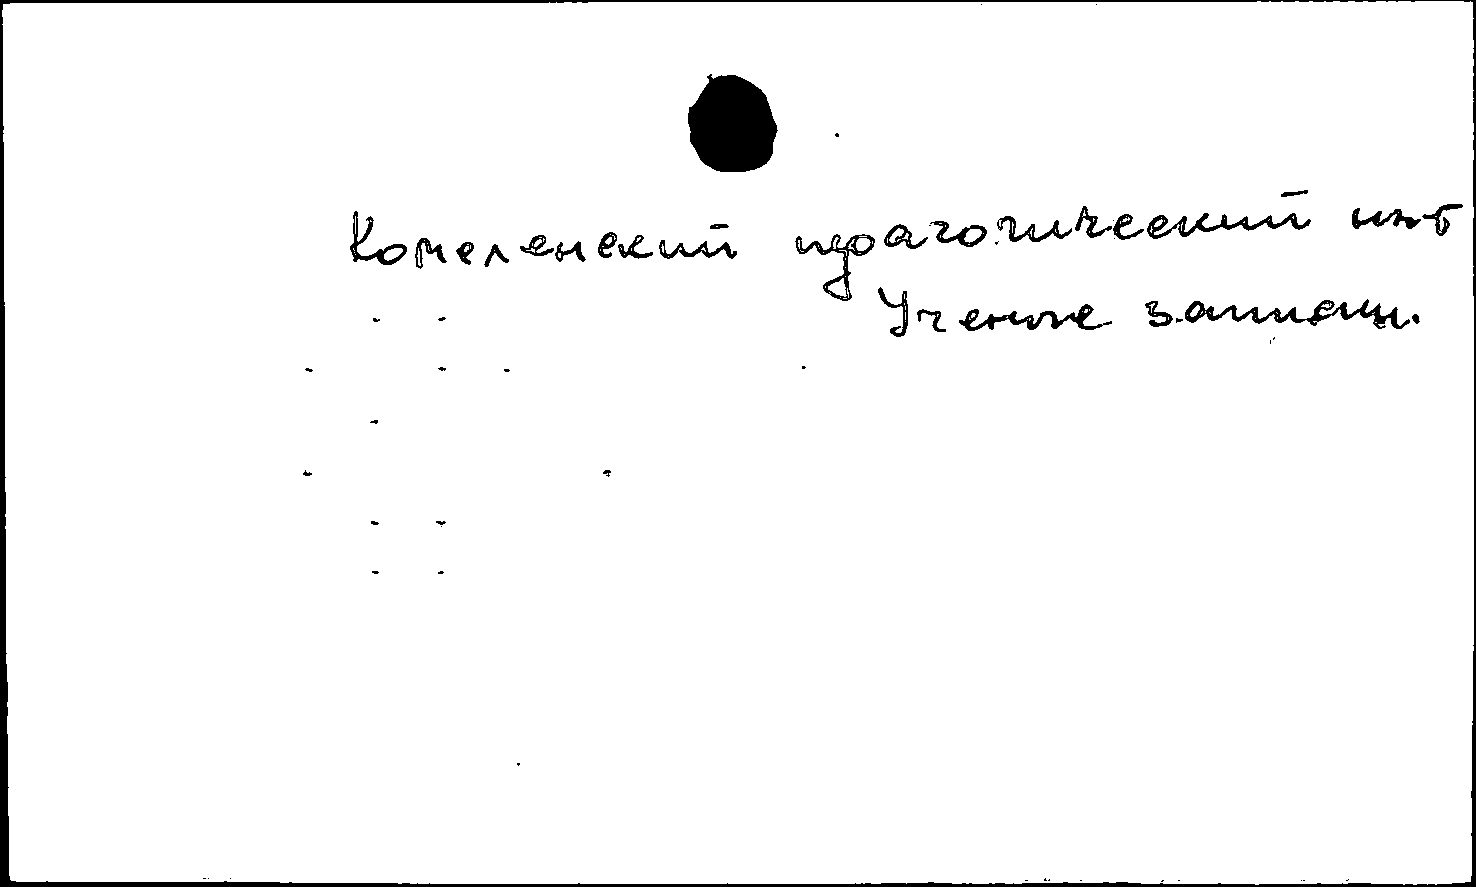 Комеленский педагогический ин-т
Ученые записки.